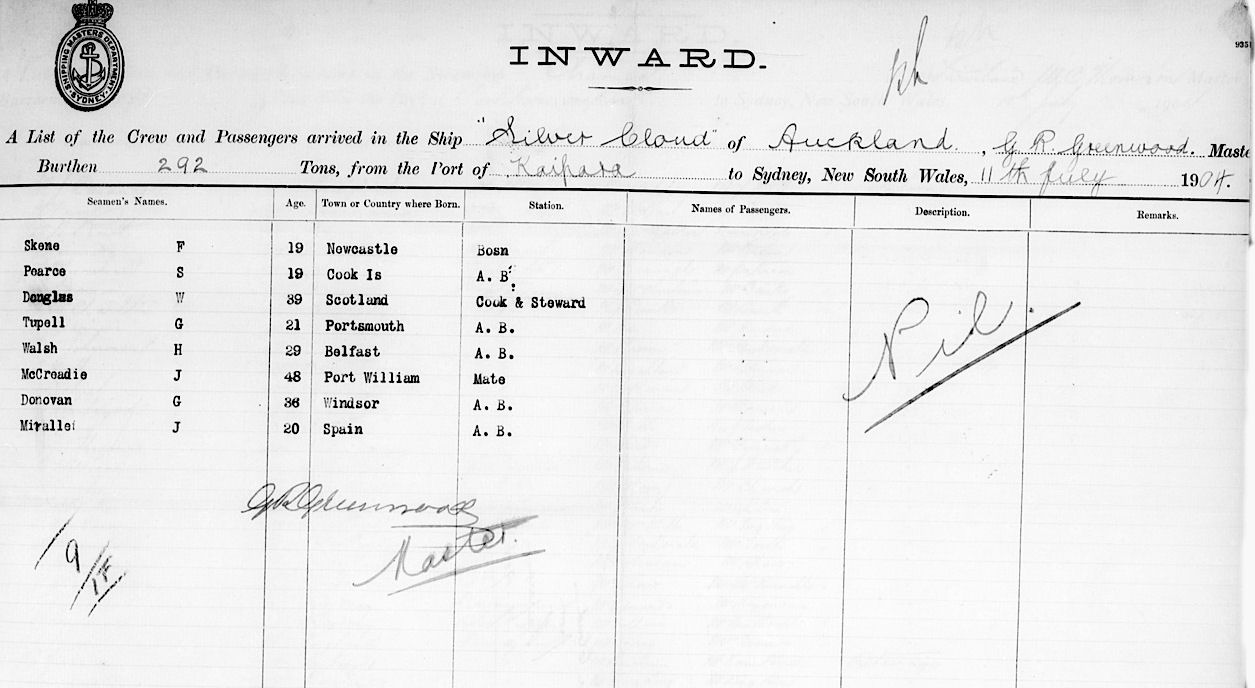 SHIPPING MASTERS DEPARTMENT
SYDNEY
INWARD.
9351
A List of the Crew and Passengers arrived in the Ship "Silver Cloud" of Auckland, G R Greenwood. Maste
Burthen 292 Tons, from the Port of Kaipara to Sydney, New South Wales, 11th July 1904.
Seamen's Names. Age. Town or Country where Born. Station. Names of Passengers. Description. Remarks.
Skene F 19 Newcastle Bosn
Pearce S 19 Cook Is A. B.
Douglas W 39 Scotland Cook & Steward
Tupell G 21 Portsmouth A. B.
Walsh H 29 Belfast A. B.
McCreadie J 48 Port William Mate
Donovan G 36 Windsor A. B.
Mirallei J 20 Spain A. B.
Nil.
G R Greenwood
Master.